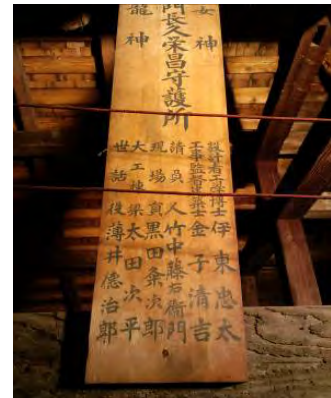 女神
門長久栄昌守護所
龍神
設計者工学博士伊東忠太
工事監督建築士金子清吉
請負人竹中藤右衛門
現場員黒田条次郎
大工棟梁太田次平
世話役薄井徳治郎